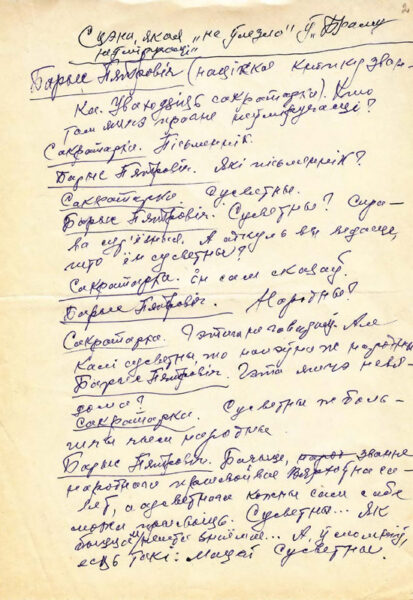 Сцэна, якая "не ўлезла" ў "Драму
Барыс Пятровіч (націскае кнопку зван-
ка. Уваходзіць сакратарка). Хто
там яшчэ
Сакратарка. Пісьменнік.
Барыс Пятровіч. Які пісьменнік?
Сакратарка. Сусветны.
Барыс Пятровіч. Сусветны? Спра-
ва сур'ёзная. А адкуль вы ведаеце,
што ён сусветны?
Сакратарка. Ён сам сказаў.
Барыс Пятровіч. Народны?
Сакратарка. Гэтага не гаварыў. Але
калі сусветны, то напэўна ж народны.
Барыс Пятровіч. Гэта яшчэ невя-
дома?
Сакратарка. Сусветны ж боль-
шы чым народны.
Барыс Пятровіч. Бачыце, званне
народнага прысвойвае Вярхоўны Са-
вет, а сусветнага кожны сам сабе
можа прысвоіць. Сусветны... Як
быццам нешта знаёмае... А, ўспомніў,
ёсць такі: Мацей Сусветны.
2